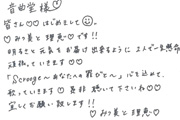 音曲堂様♡
皆さん♡♡はじめまして☺。
♡みつ美と理恵♡です!!
明るさと元気をお届け出来るように 2人で一生懸命
頑張っていきます♡♡
「Scrooge〜あなたへの罪の〜」心を込めて、
歌っていきます♡是非 聴いて下さいね♡♡
宜しくお願い致します!!
♡みつ美と理恵♡